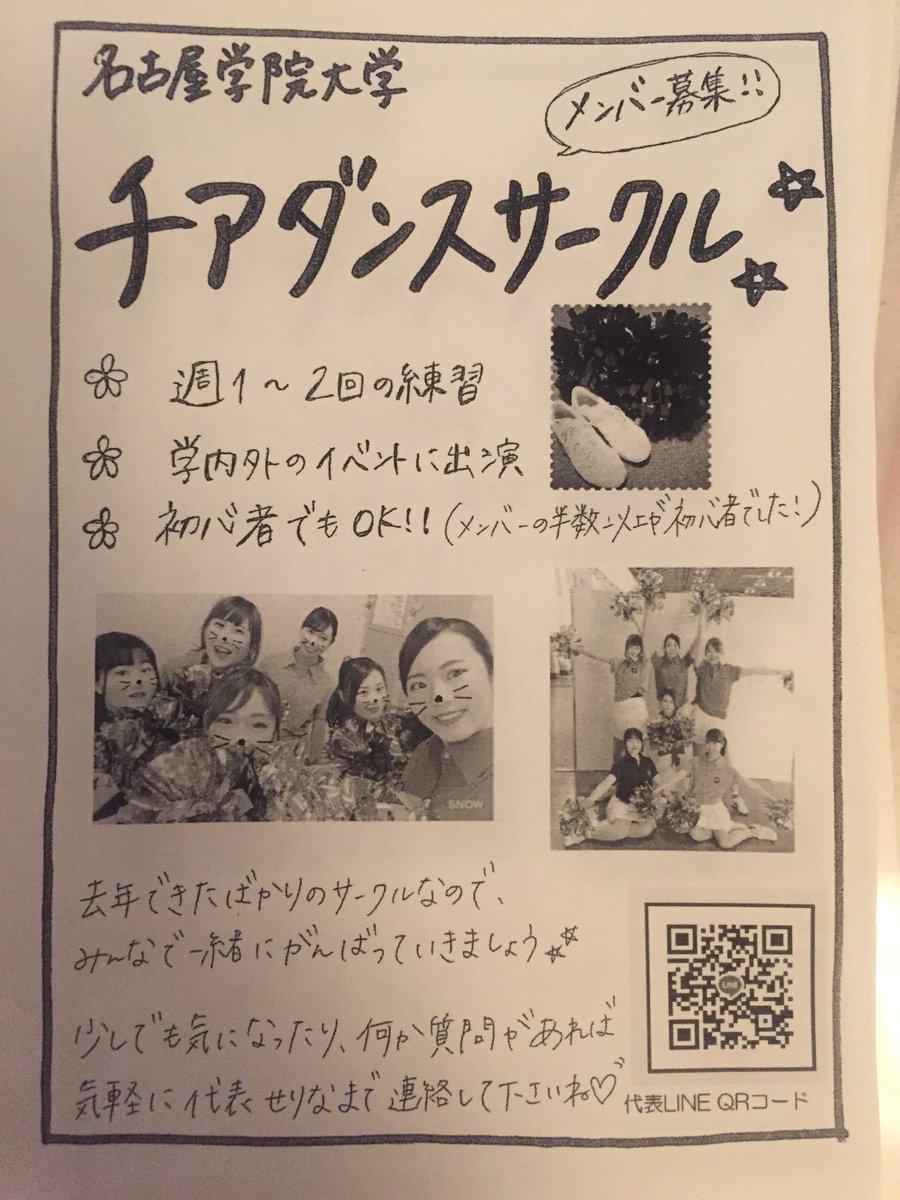 名古屋学院大学
メンバー募集!!
チアダンスサークル
週1〜2回の練習
学内外のイベントに出演
初心者でもOK!!(メンバーの半数以上が初心者でした!)
SNOW
去年できたばかりのサークルなので、
みんなで一緒にがんばっていきましょう
少しでも気になったり、何か質問があれば
気軽に代表せりなまで連絡して下さいね♡
LINE
代表LINE QRコード